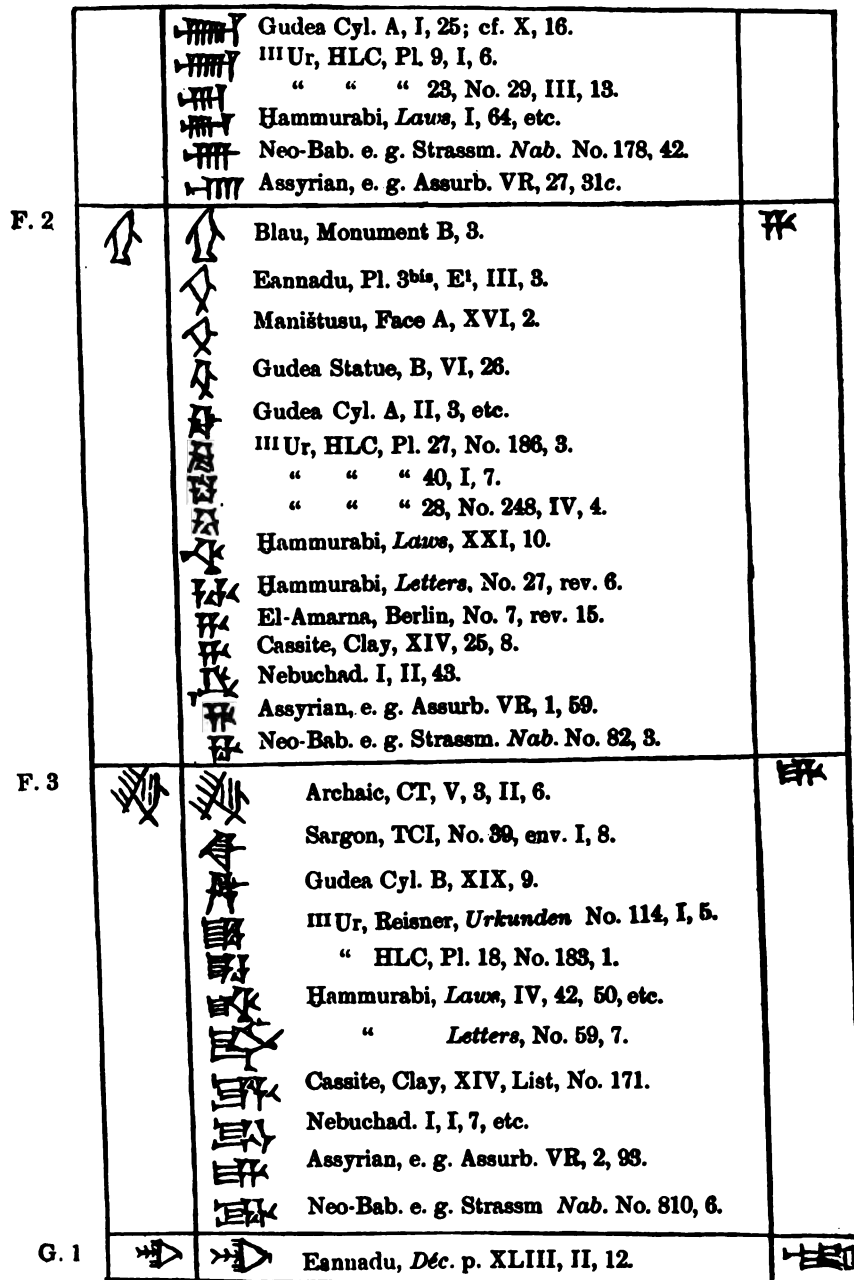 Gudea Cyl. A, I, 25; cf. X, 16.
III Ur, HLC, Pl. 9, I, 6.
“ “ “ 23, No. 29, III, 13.
Ḫammurabi, Laws, I, 64, etc.
Neo-Bab. e. g. Strassm. Nab. No. 178, 42.
Assyrian, e. g. Assurb. VR, 27, 31c.
F. 2
Blau, Monument B, 3.
Eannadu, Pl. 3bis, E¹, III, 3.
Maništusu, Face A, XVI, 2.
Gudea Statue, B, VI, 26.
Gudea Cyl. A, II, 3, etc.
III Ur, HLC, Pl. 27, No. 186, 3.
“ “ “ 40, I, 7.
“ “ “ 28, No. 248, IV, 4.
Ḫammurabi, Laws, XXI, 10.
Ḫammurabi, Letters, No. 27, rev. 6.
El-Amarna, Berlin, No. 7, rev. 15.
Cassite, Clay, XIV, 25, 8.
Nebuchad. I, II, 43.
Assyrian, e. g. Assurb. VR, 1, 59.
Neo-Bab. e. g. Strassm. Nab. No. 82, 3.
F. 3
Archaic, CT, V, 3, II, 6.
Sargon, TCI, No. 39, env. I, 8.
Gudea Cyl. B, XIX, 9.
III Ur, Reisner, Urkunden No. 114, I, 5.
“ HLC, Pl. 18, No. 183, 1.
Ḫammurabi, Laws, IV, 42, 50, etc.
“ Letters, No. 59, 7.
Cassite, Clay, XIV, List, No. 171.
Nebuchad. I, I, 7, etc.
Assyrian, e. g. Assurb. VR, 2, 93.
Neo-Bab. e. g. Strassm Nab. No. 810, 6.
G. 1
Eannadu, Déc. p. XLIII, II, 12.